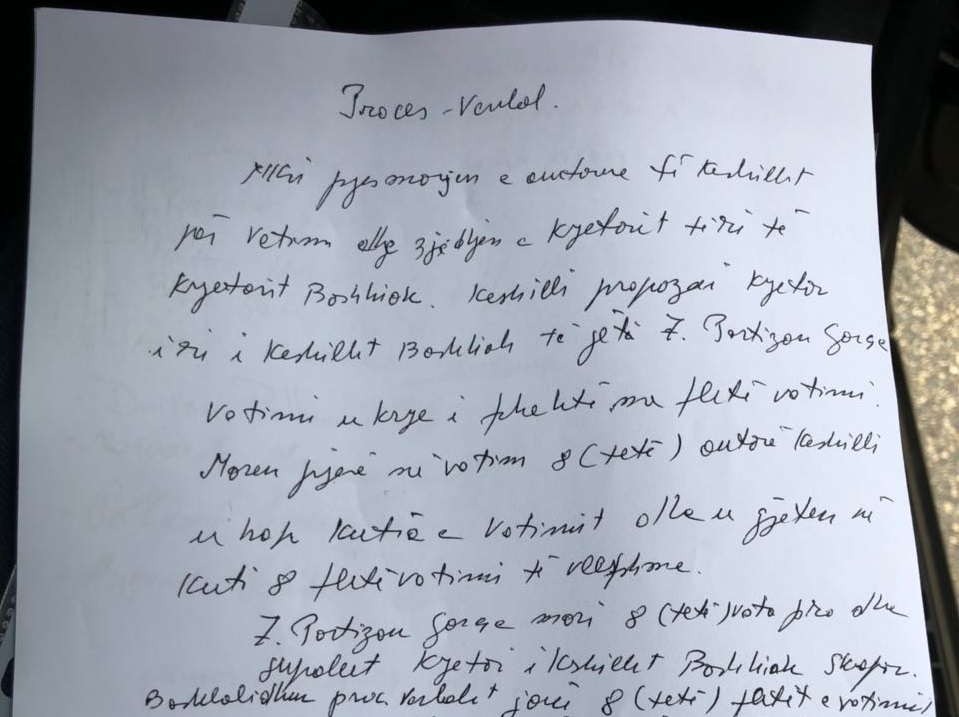 Proces-Verbal.
pjesmarrjen e anëtarve të Keshillit
për Votim dhe zjedhjen e Kryetarit të ri të
Kryetarit Bashkiak. Keshilli propozoi Kryetar
i ri i Keshillit Bashkiak të jetë Z. Partizan
Votimi u krye i fshehtë me fletë votimi.
Moren pjesë në votim 8 (tetë) anëtarë Keshilli
u hap Kutia e Votimit dhe u gjeten në
Kuti 8 fletë votimi të vlefshme.
Z. Partizan mori 8 (tetë) vota pro dhe
Kryetar i Keshillit Bashkiak
Bashkalidhur proc. verbalit janë 8 (tetë) fletët e votimit